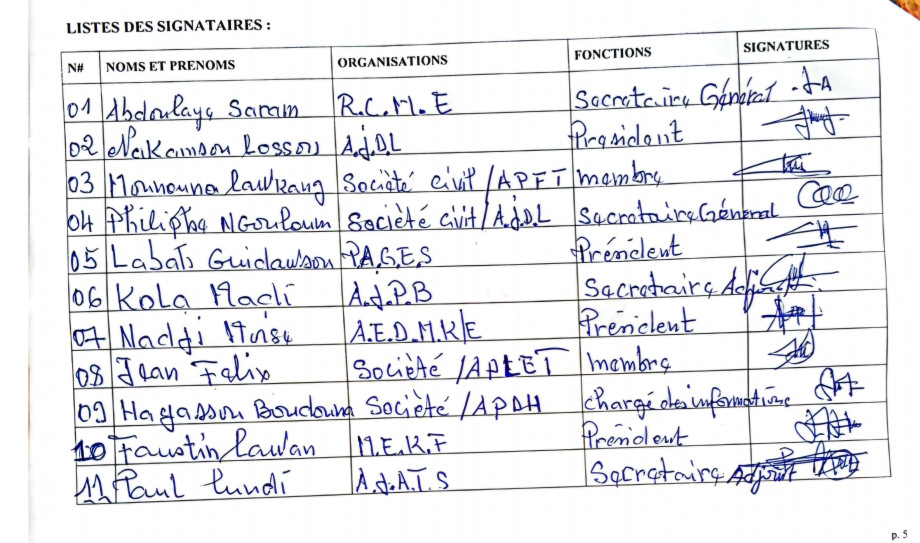 LISTES DES SIGNATAIRES :
N# NOMS ET PRENOMS ORGANISATIONS FONCTIONS SIGNATURES
01 Abdoulaye Saram R.C.M.E Secretaire Général
02 Nakamson Lossou A.J.D.L President
03 Mounouna Laukang Société civil/APFT membre
04 Philiphe NGouloum Société civit/A.J.D.L Secretaire Général
05 Labats Guidawson P.A.G.E.S Président
06 Kola Madi A.J.P.B Secretraire Adjoint
07 Nadji Moise A.E.D.M.K/E President
08 Jean Felix Société /APLET membre
09 Hagasson Boudouna Société /APDH chargé des informations
10 Faustin Laulan M.E.K.F President
11 Paul Lundi A.J.A.T.S Secretaire Adjoint
p. 5